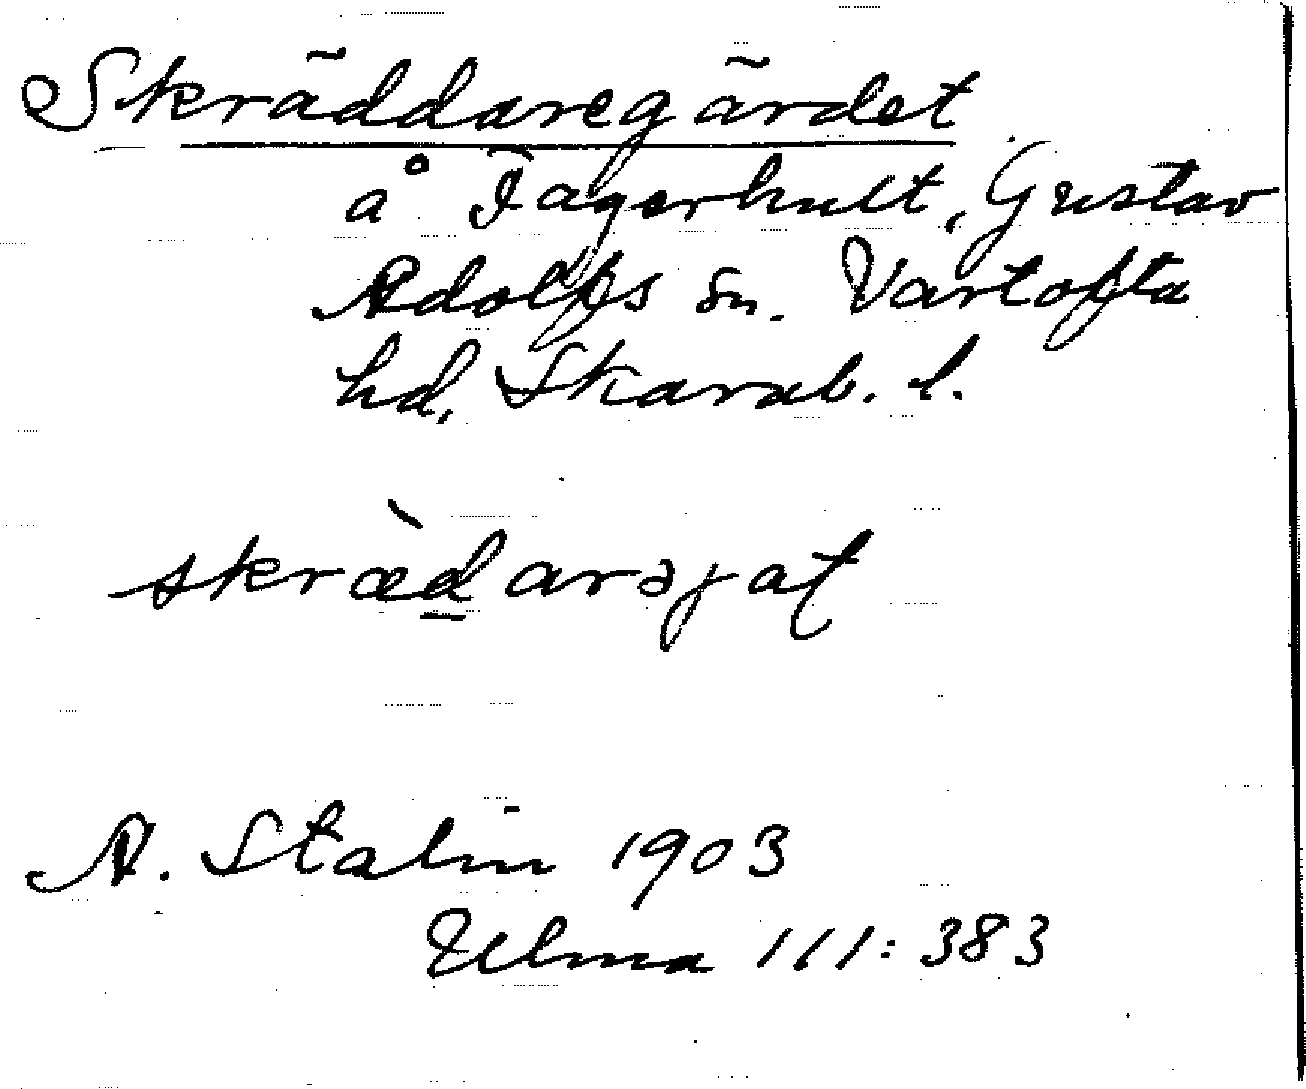 Skräddaregärdet
å Jägerhult, Gustav
Adolfs sn. Vartofta
hd, Skarab. l.
skræ̀darəjat
A. Stalin 1903
Ulma 111:383